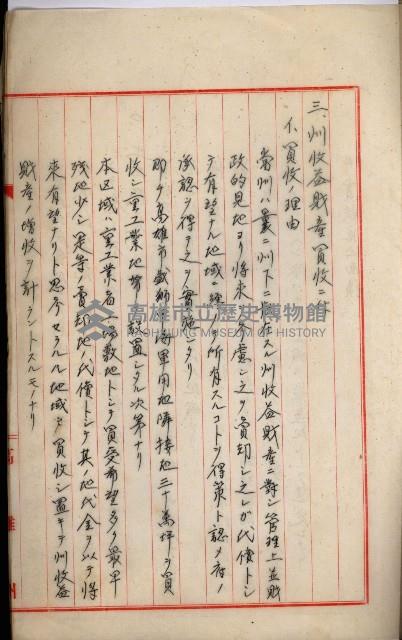 三、州收益財産買收ニ
イ、買收ノ理由
當州ハ曩ニ州下ニ 在スル州收益財産ニ對シ管理上並財
政的見地ヨリ將來ヲ考慮シ之ヲ賣却シ之レガ代償トシ
テ有望ナル地域ニ 所有スルコトヲ得策ト認メ府ノ
承認ヲ得テ之ヲ實施シタリ
即チ高雄市戲獅 海軍用地隣接地三十萬坪ヲ買
收シ重工業地帶 放置シタル次第ナリ
本区域ハ重工業者 工場敷地トシテ買受希望多ク最早
殘地少シ是等ノ賣却地ノ代償トシテ其ノ地代金ヲ以テ將
來有望ナリト思考セラルル地域ヲ買收シ置キテ州收益
財産ノ增收ヲ計ラントスルモノナリ
高雄州
高雄市立歷史博物館
KAOHSIUNG MUSEUM OF HISTORY